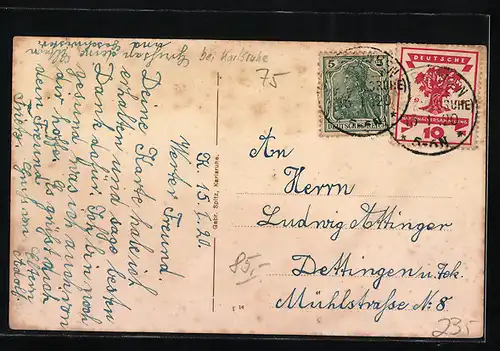 bei Karlsruhe
75
K. 15.I.20.
Werter Freund.
Deine Karte habe ich
erhalten und sage besten
Dank dafür. Ich bin noch
gesund was ich auch von
dir hoffe. Es grüßt dich
dein Freund Adolf.
Grüße an Eltern
Grüssen deine Eltern
und Geschwister
Gebr. Spitz, Karlsruhe.
5 5
DEUTSCHES REICH
DEUTSCHE
NATIONALVERSAMMLUNG
10
RUHE)
An
Herrn
Ludwig Attinger
Dettingen u/Tek.
Mühlstraße No. 8.
85,-
235